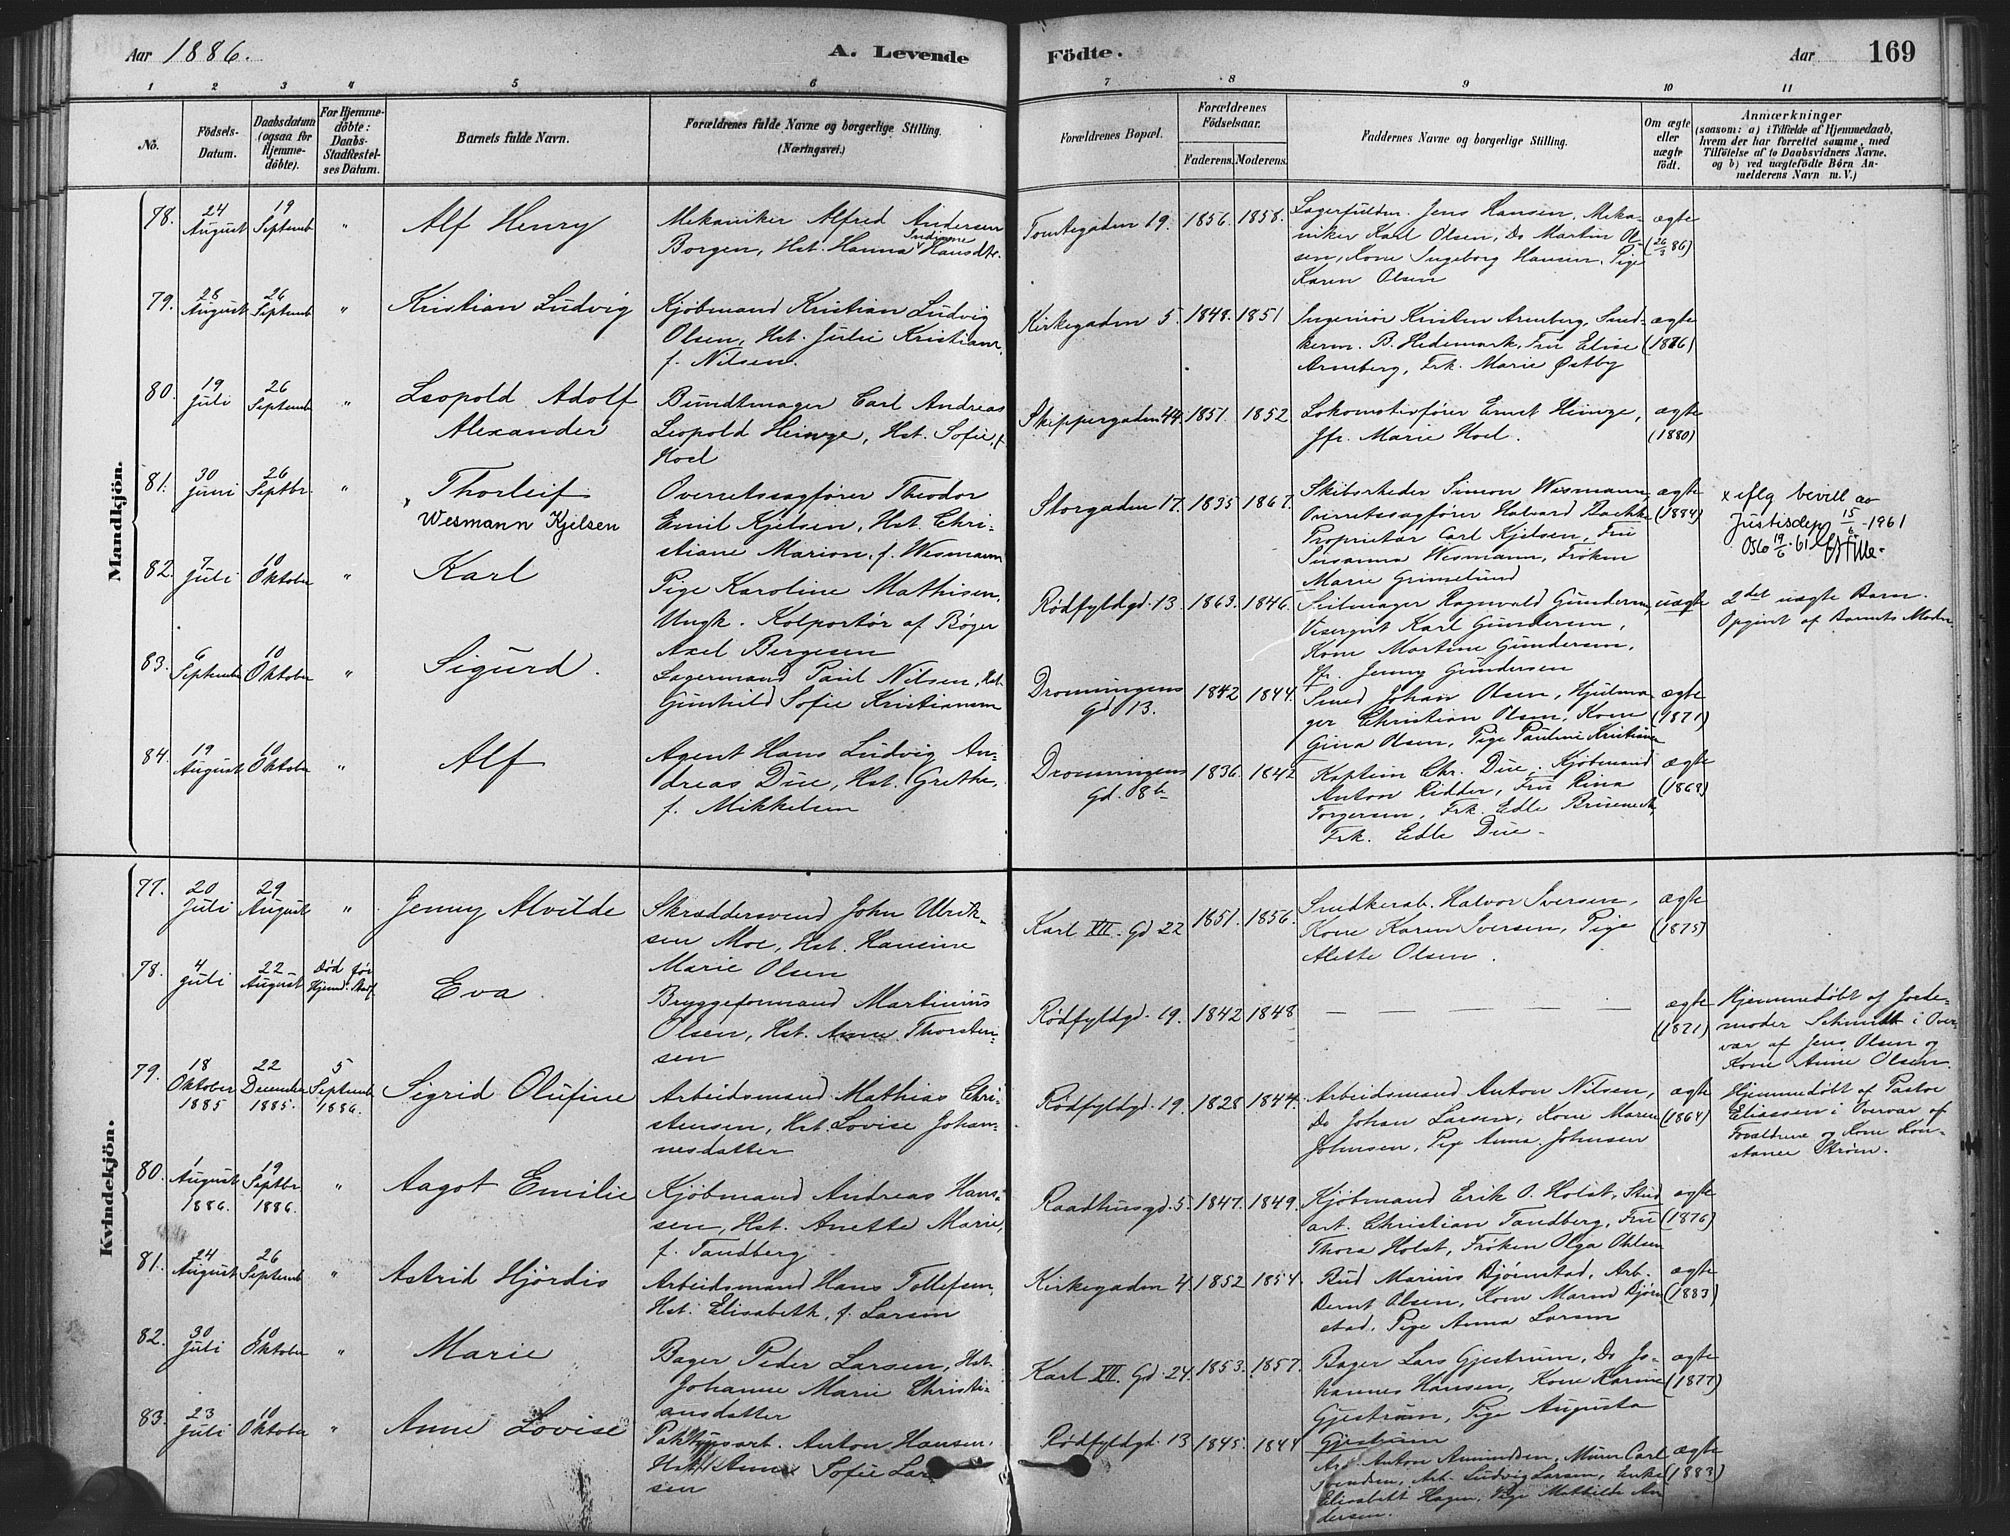 Aar 1886.
A. Levende Födte.
Aar
169
1 2 3 4 5 6 7 8 9 10 11
No.
Födsels-Datum.
Daabsdatum (ogsaa for Hjemme-döbte).
For Hjemme-döbte: Daabs-Stadfæstel-ses Datum.
Barnets fulde Navn.
Forældrenes fulde Navne og borgerlige Stilling.
(Næringsvei.)
Forældrenes Bopæl.
Forældrenes Födselsaar.
Faderens. Moderens.
Faddernes Navne og borgerlige Stilling.
Om ægte eller uægte födt.
Anmærkninger
(saasom: a) i Tilfælde af Hjemmedaab,
hvem der har forrettet samme, med
Tilföielse af to Daabsvidners Navne,
og b) ved uægtefödte Børn An-
melderens Navn m. V.)
Mandkjön.
78. 24 August 19 Septemb " Alf Henry
Mekaniker Alfred Andersen
Borgen, Hst. Hanna Indiane Hansdtr.
Tomtegaden 19. 1856. 1858.
Lagerfuldm. Jens Hansen, Meka-
niker Karl Olsen, Do Martin Ol-
sen, Kone Ingeborg Hansen, Pige
Karen Olsen
ægte (26/3 86)
79. 28 August 26 Septemb " Kristian Ludvig
Kjöbmand Kristian Ludvig
Olsen, Hst. Julie Kristiane,
f. Nilsen.
Kirkegaden 5 1848. 1851
Ingeniør Kristen Arneberg, Sned-
kerm. B. Hedemark, Fru Elise
Arneberg, Frk. Marie Østby
ægte (1876)
80. 19 Juli 26 Septemb " Leopold Adolf
Alexander
Bundtmager Carl Andreas
Leopold Heinze, Hst. Sofie, f.
Hoel
Skippergaden 44. 1851. 1852
Lokomotivfører Ernst Heinze,
Jfr. Marie Hoel.
ægte (1880)
81. 30 Juni 26 Septbr. " Thorleif
x Wesmann Kjelsen
Overretssagfører Theodor
Emil Kjelsen, Hst. Chri-
stiane Marion, f. Wesmann
Storgaden 17. 1835 1867.
Skibsrheder Simon Wesmann,
Overretssagfører Halvard Baekke
Proprietær Carl Kjelsen, Fru
Susanna Wesmann, Frøken
Marie Grimelund
ægte (1884)
x iflg bevill av
Justisdep 15/6-1961
Oslo 19/6-61
82. 7 Juli 10 Oktober " Karl
Pige Karoline Mathisen,
Ungk. Kolportør af Bøger
Axel Børgesen
Rødfyldgd. 13. 1863. 1846.
Seilmager Ragnvald Gundersen,
Visergut Karl Gundersen,
Kone Martine Gundersen,
Jfr. Jenny Gundersen
uægte
2det uægte Barn.
Opgivet af Barnets Moder.
83. 6 September 10 Oktober " Sigurd.
Lagermand Paul Nilsen, Hst.
Gunhild Sofie Kristiansen
Dronningens
gd 13. 1842 1844.
Smed Johan Olsen, Hjulma-
ger Christian Olsen, Kone
Gina Olsen, Pige Pauline Kristiansen
ægte (1871)
84. 19 August 10 Oktober " Alf
Agent Hans Ludvig An-
dreas Due, Hst. Grethe,
f. Mikkelsen
Dronningens
Gd. 8b 1836. 1842
Kaptein Chr. Due, Kjøbmand
Anton Ridder, Fru Rina
Torgersen, Frk. Edle
Frk. Edle Due.
ægte (1869)
Kvindekjön.
77. 20 Juli 29 August " Jenny Alvilde
Skræddersvend John Ulrik-
sen Moe, Hst. Hansine
Marie Olsen
Karl XII. Gd 22 1851. 1856.
Snedkerab. Halvor Iversen,
Kone Karen Iversen, Pige
Alette Olsen.
ægte (1875)
78. 4 Juli 22 August Død før Hjemd. Stadf. Eva.
Bryggeformand Martinius
Olsen, Hst. Anne Thorsten-
sen
Rødfyldgd. 19. 1842 1848
— — — — — —
ægte (1871)
Hjemmedøbt af Jorde-
moder Schmidt i Over-
vær af Jens Olsen og
Kone Anne Olsen.
79. 18 Oktober 1885 22 December 1885. 5 Septemb 1886. Sigrid Olufine
Arbeidsmand Mathias Chri-
stensen, Hst. Lovise Johan-
nesdatter
Rødfyldgd. 19. 1828 1844.
Arbeidsmand Anton Nilsen,
Do Johan Larsen, Kone Maren
Johnsen, Pige Anna Johnsen
ægte (1864)
Hjemmedøbt af Pastor
Eliassen i Overvær af
Forældrene og Kone Kon-
stance Strøm.
80. 1 August 1886. 19 Septbr. 1886. " Aagot Emilie
Kjöbmand Andreas Han-
sen, Hst. Anette Marie,
f. Tandberg
Raadhusgd. 5. 1847. 1849.
Kjöbmand Erik O. Holst, Stud.
art. Christian Tandberg, Fru
Thora Holst, Frøken Olga Ohlsen
ægte (1876)
81. 24 August 26 Septemb " Astrid Hjördis
Arbeidsmand Hans Tollefsen,
Hst. Elisabeth, f. Larsen
Kirkegaden 4 1852 1854.
Bud Marius Bjørnstad, Arb.
Bernt Olsen, Kone Maren Bjørn-
stad, Pige Anna Larsen
ægte (1883)
82. 30 Juli 10 Oktober " Marie
Bager Peder Larsen, Hst.
Johanne Marie Christi-
ansdatter
Karl XII. Gd. 24. 1853. 1857.
Bager Lars Gjestrum, Do Jo-
hannes Hansen, Kone Karine
Gjestrum, Pige Augusta
Gjestrum
ægte (1877)
83. 23 Juli 10 Oktober " Anne Lovise
Pakhusarb. Anton Hansen,
Hst. Anne Sofie Lar-
sen
Rødfyldgd. 13 1845. 1844
Arb. Anton Amundsen, Murer Carl
Svendsen, Arb. Ludvig Larsen, Enke
Elisabeth Hagen, Pige Mathilde An-
dersen.
ægte (1883)